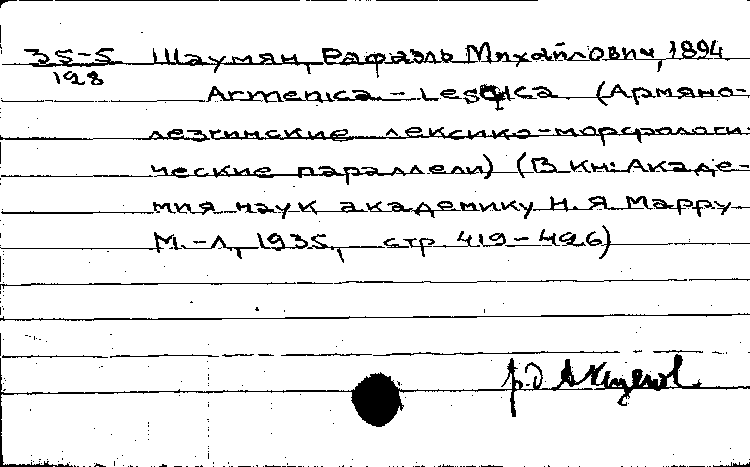 35-5 Шаумян, Рафаэль Михайлович, 1894
128
Armenica - Lesgica (Армяно-
лезгинские лексико-морфологи
ческие параллели) (В кн: Акаде-
мия наук академику Н. Я. Марру
М.-Л, 1935, стр. 419-426)